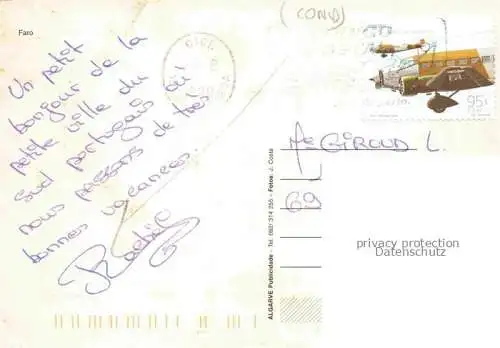 Faro
Un petit
bonjour de la
petite ville du
sud portugais où
nous passons de très
bonnes vacances.
(COND)
95
Me GIROUD L.
69
privacy protection
Datenschutz
ALGARVE Publicidade - Tel. (082) 314 255 - Fotos: J. Costa